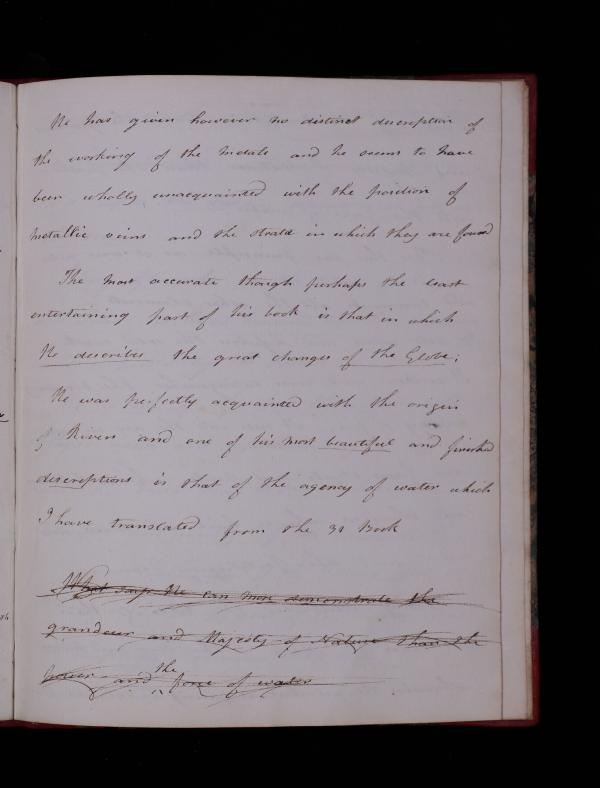 He has given however no distinct description of
the working of the metals and he seems to have
been wholly unacquainted with the position of
metallic veins and the strata in which they are found
The most accurate though perhaps the least
entertaining part of his book is that in which
He describes the great changes of the Globe;
He was perfectly acquainted with the origin
of Rivers and one of his most beautiful and finished
descriptions is that of the agency of water which
I have translated from the 3d Book
What says He can more demonstrate the
grandeur and Majesty of Nature than the
power and the force of water